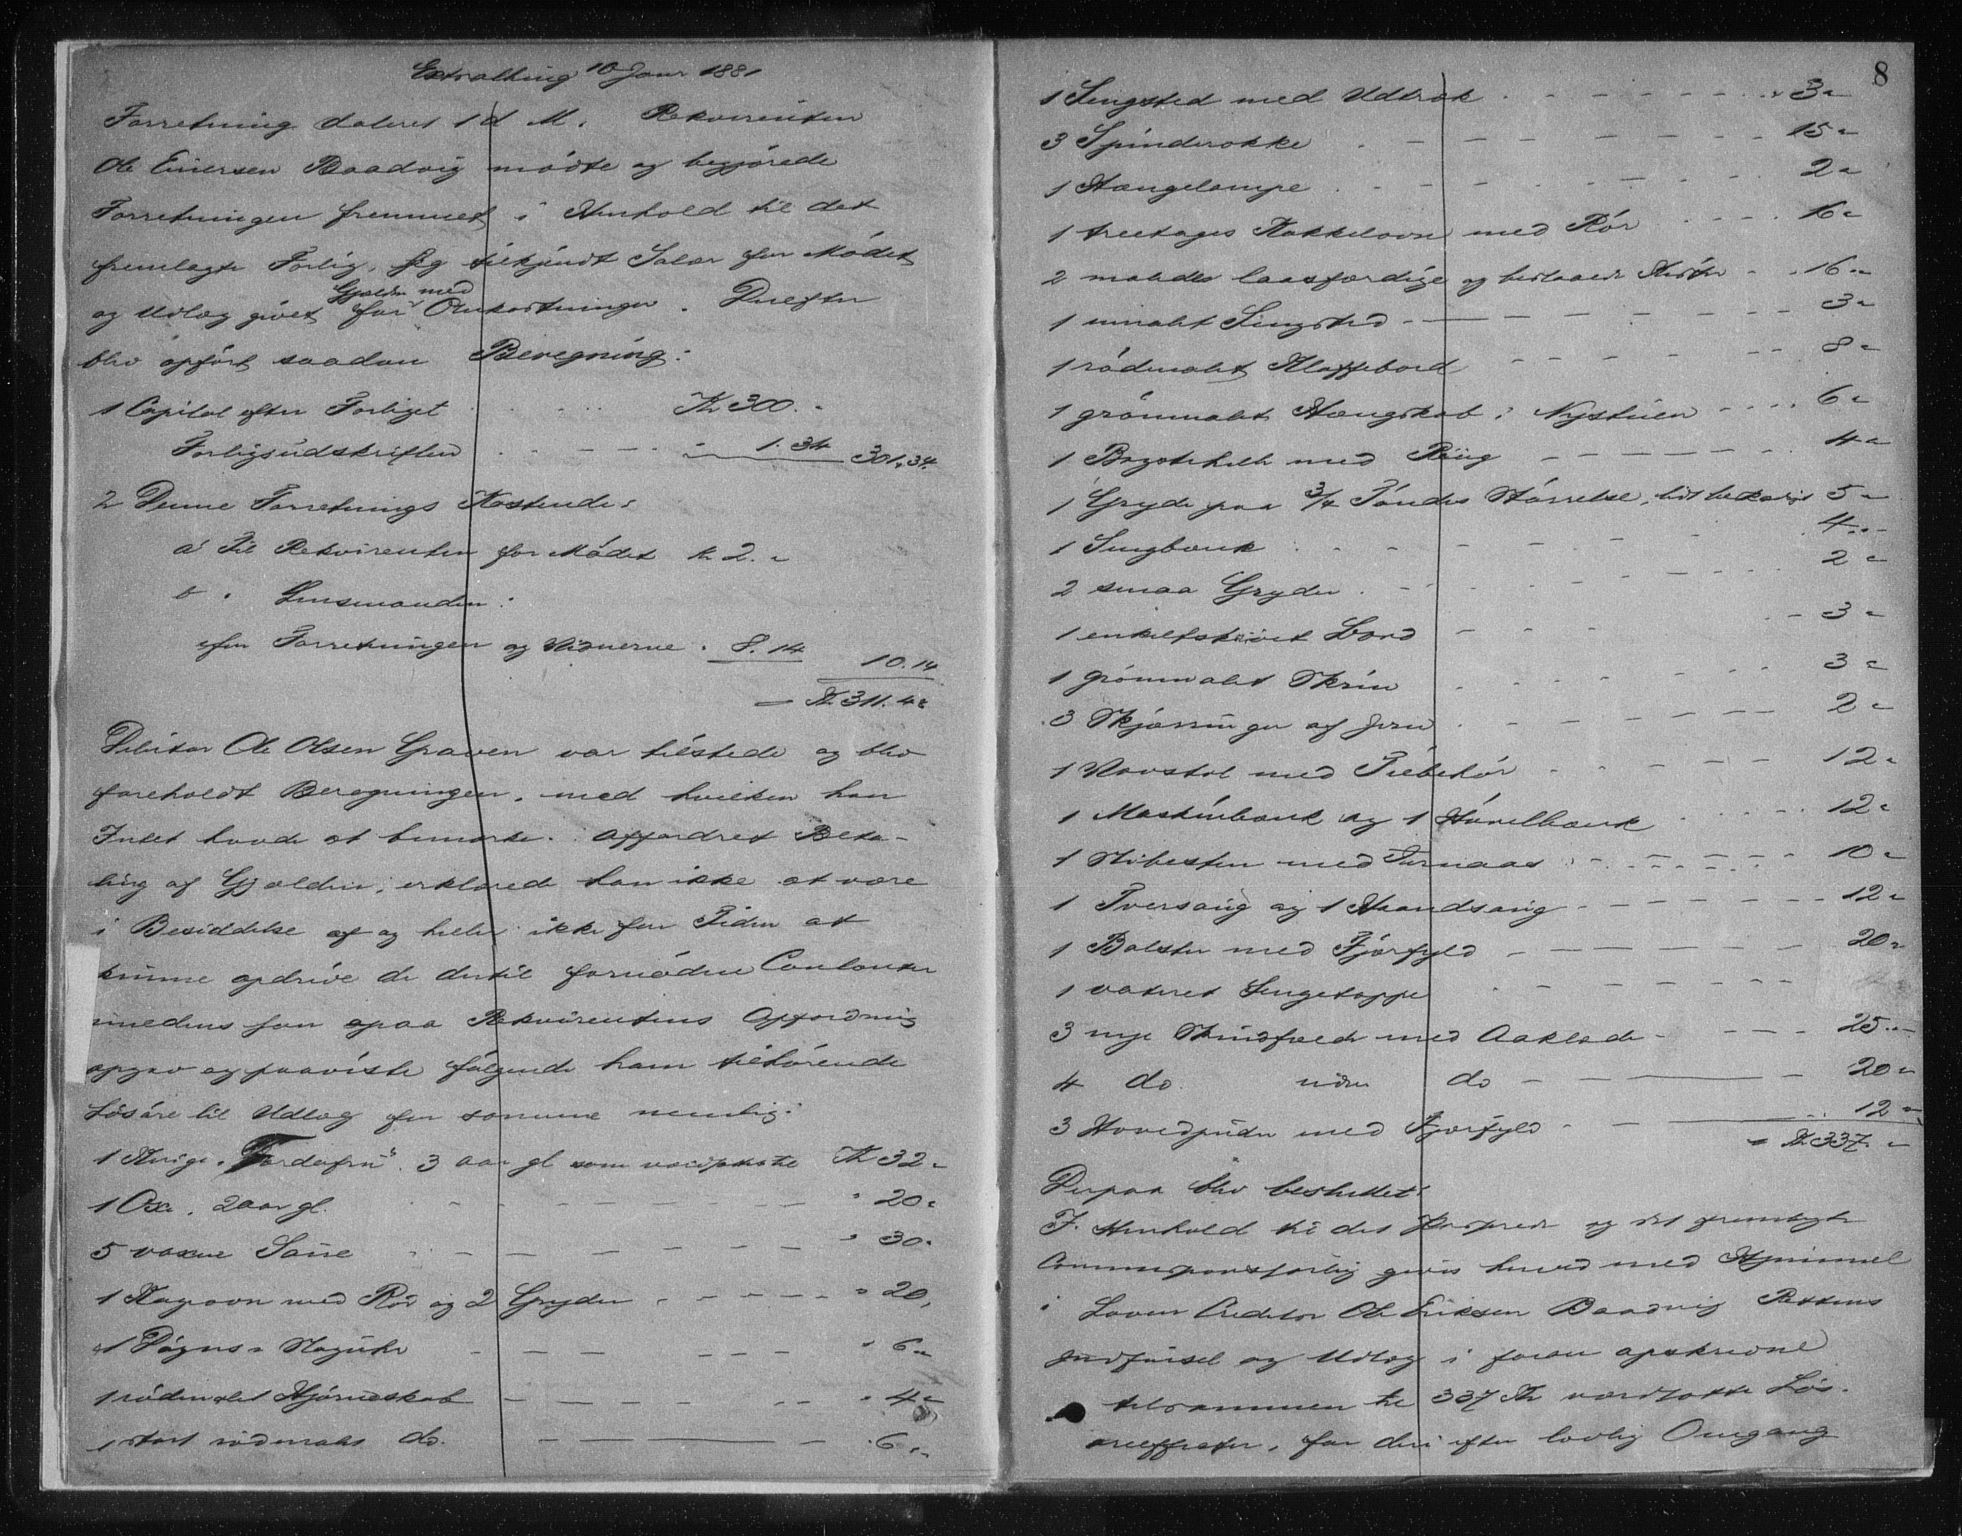 Extrathing 10 Janr 1881
Forretning dateret 1 d M. Rekvirenten
Ole Eriersen Baadvig mødte og begjærede
Forretningen fremmet i Henhold til det
fremlagte Forlig, sig tilkjendt Salær for Mødet
og Udlæg givet for Gjælden med Omkostninger. Derefter
blev opført saadan Beregning:
1 Capital efter Forliget Kr 300. "
Forligsudskriften " 1. 34 301,34.
2 Denne Forretnings Kostende:
a' til Rekvirenten for Mødet Kr 2. "
b " Lensmanden:
for Forretningen og Vidnerne . 8. 14 10. 14
Kr. 311. 48
Debitor Ole Olsen Graven var tilstede og blev
foreholdt Beregningen, med hvilken han
Intet havde at bemærke. Affordret Beta-
ling af Gjælden, erklærede han ikke at være
i Besiddelse af og heller ikke for Tiden at
kunne opdrive de dertil fornødne Contanter
imedens han paa Rekvirentens Opfordring
opgav og paaviste følgende ham tilhørende
Løsøre til Udlæg for samme nemlig:
1 Kvige "Fardafrü" 3 aar gl som Kr 32 "
1 Oxe, 2 aar gl. " 20 "
5 voxne Saue " 30 "
1 Kagovn med Rør og 2 Gryder " 20,
1 Døgns Slaguhr " 6 "
1 rødmalet Hjørneskab " 4 "
1 stort rødmalt do. " 6 "
8
1 Sengsted med Udtræk " 3 "
3 Spinderokke 15 "
1 Hængelampe 2 "
1 treetages Kakkelovn med Rør 16 "
2 malede laasfærdige og beslaaede Kister 16 "
1 umalt Sengsted 3 "
1 rødmalet Klaffebord 8 "
1 grønmalt Hængskab i Nystuen 6 "
1 Bryggekjel med Ring 4 "
1 Gryde paa 3/4 Tøndes Størrelse, lidt beskadiget 5 "
1 Sengbænk 4 "
2 smaa Gryder 2 "
1 enkeltskivet Bord 3 "
1 grønmalet Skrin 3 "
3 Skjæringer af Jern 2 "
1 Vævstol med Tilbehør 12 "
1 Maskinbænk og 1 Høvelbænk 12 "
1 Slibesten med 10 "
1 Tversaug og 1 Haandsaug 12 "
1 Bolster med Fjærfyld 20 "
1 vateret Sengetæppe
3 nye Skindfælde med Aaklæde 25 "
4 do. uden do 20 "
3 Hovedpuder med Fjærfyld 12 "
Kr. 337 "
Derpaa blev besluttet:
I Henhold til det Passerede og det fremlagte
Commissionsforlig gives herved med Hjemmel
i Loven Creditor Ole Eriksen Baadvig Rettens
Indførsel og Udlæg i foran opskrevne
tilsammen til 337 Kr værdsatte Løs-
øreeffecter, for deri efter lovlig Omgang